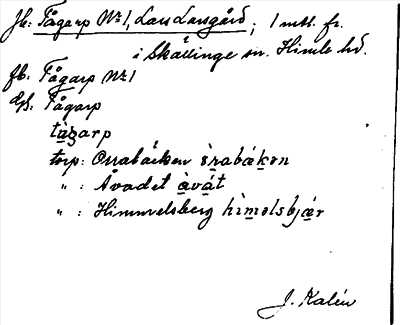 Jb: Fågarp Nr 1, Lars Larsgård; 1 mtl. fr.
i Skällinge sn. Himle hd.
fb: Fågarp Nr 1
dpl: Fågarp
tàgarp
torp: Orrabäcken òrabækon
" : Åvadet àvát
" : Himmelsberg hìmolsbjær
J. Kalén